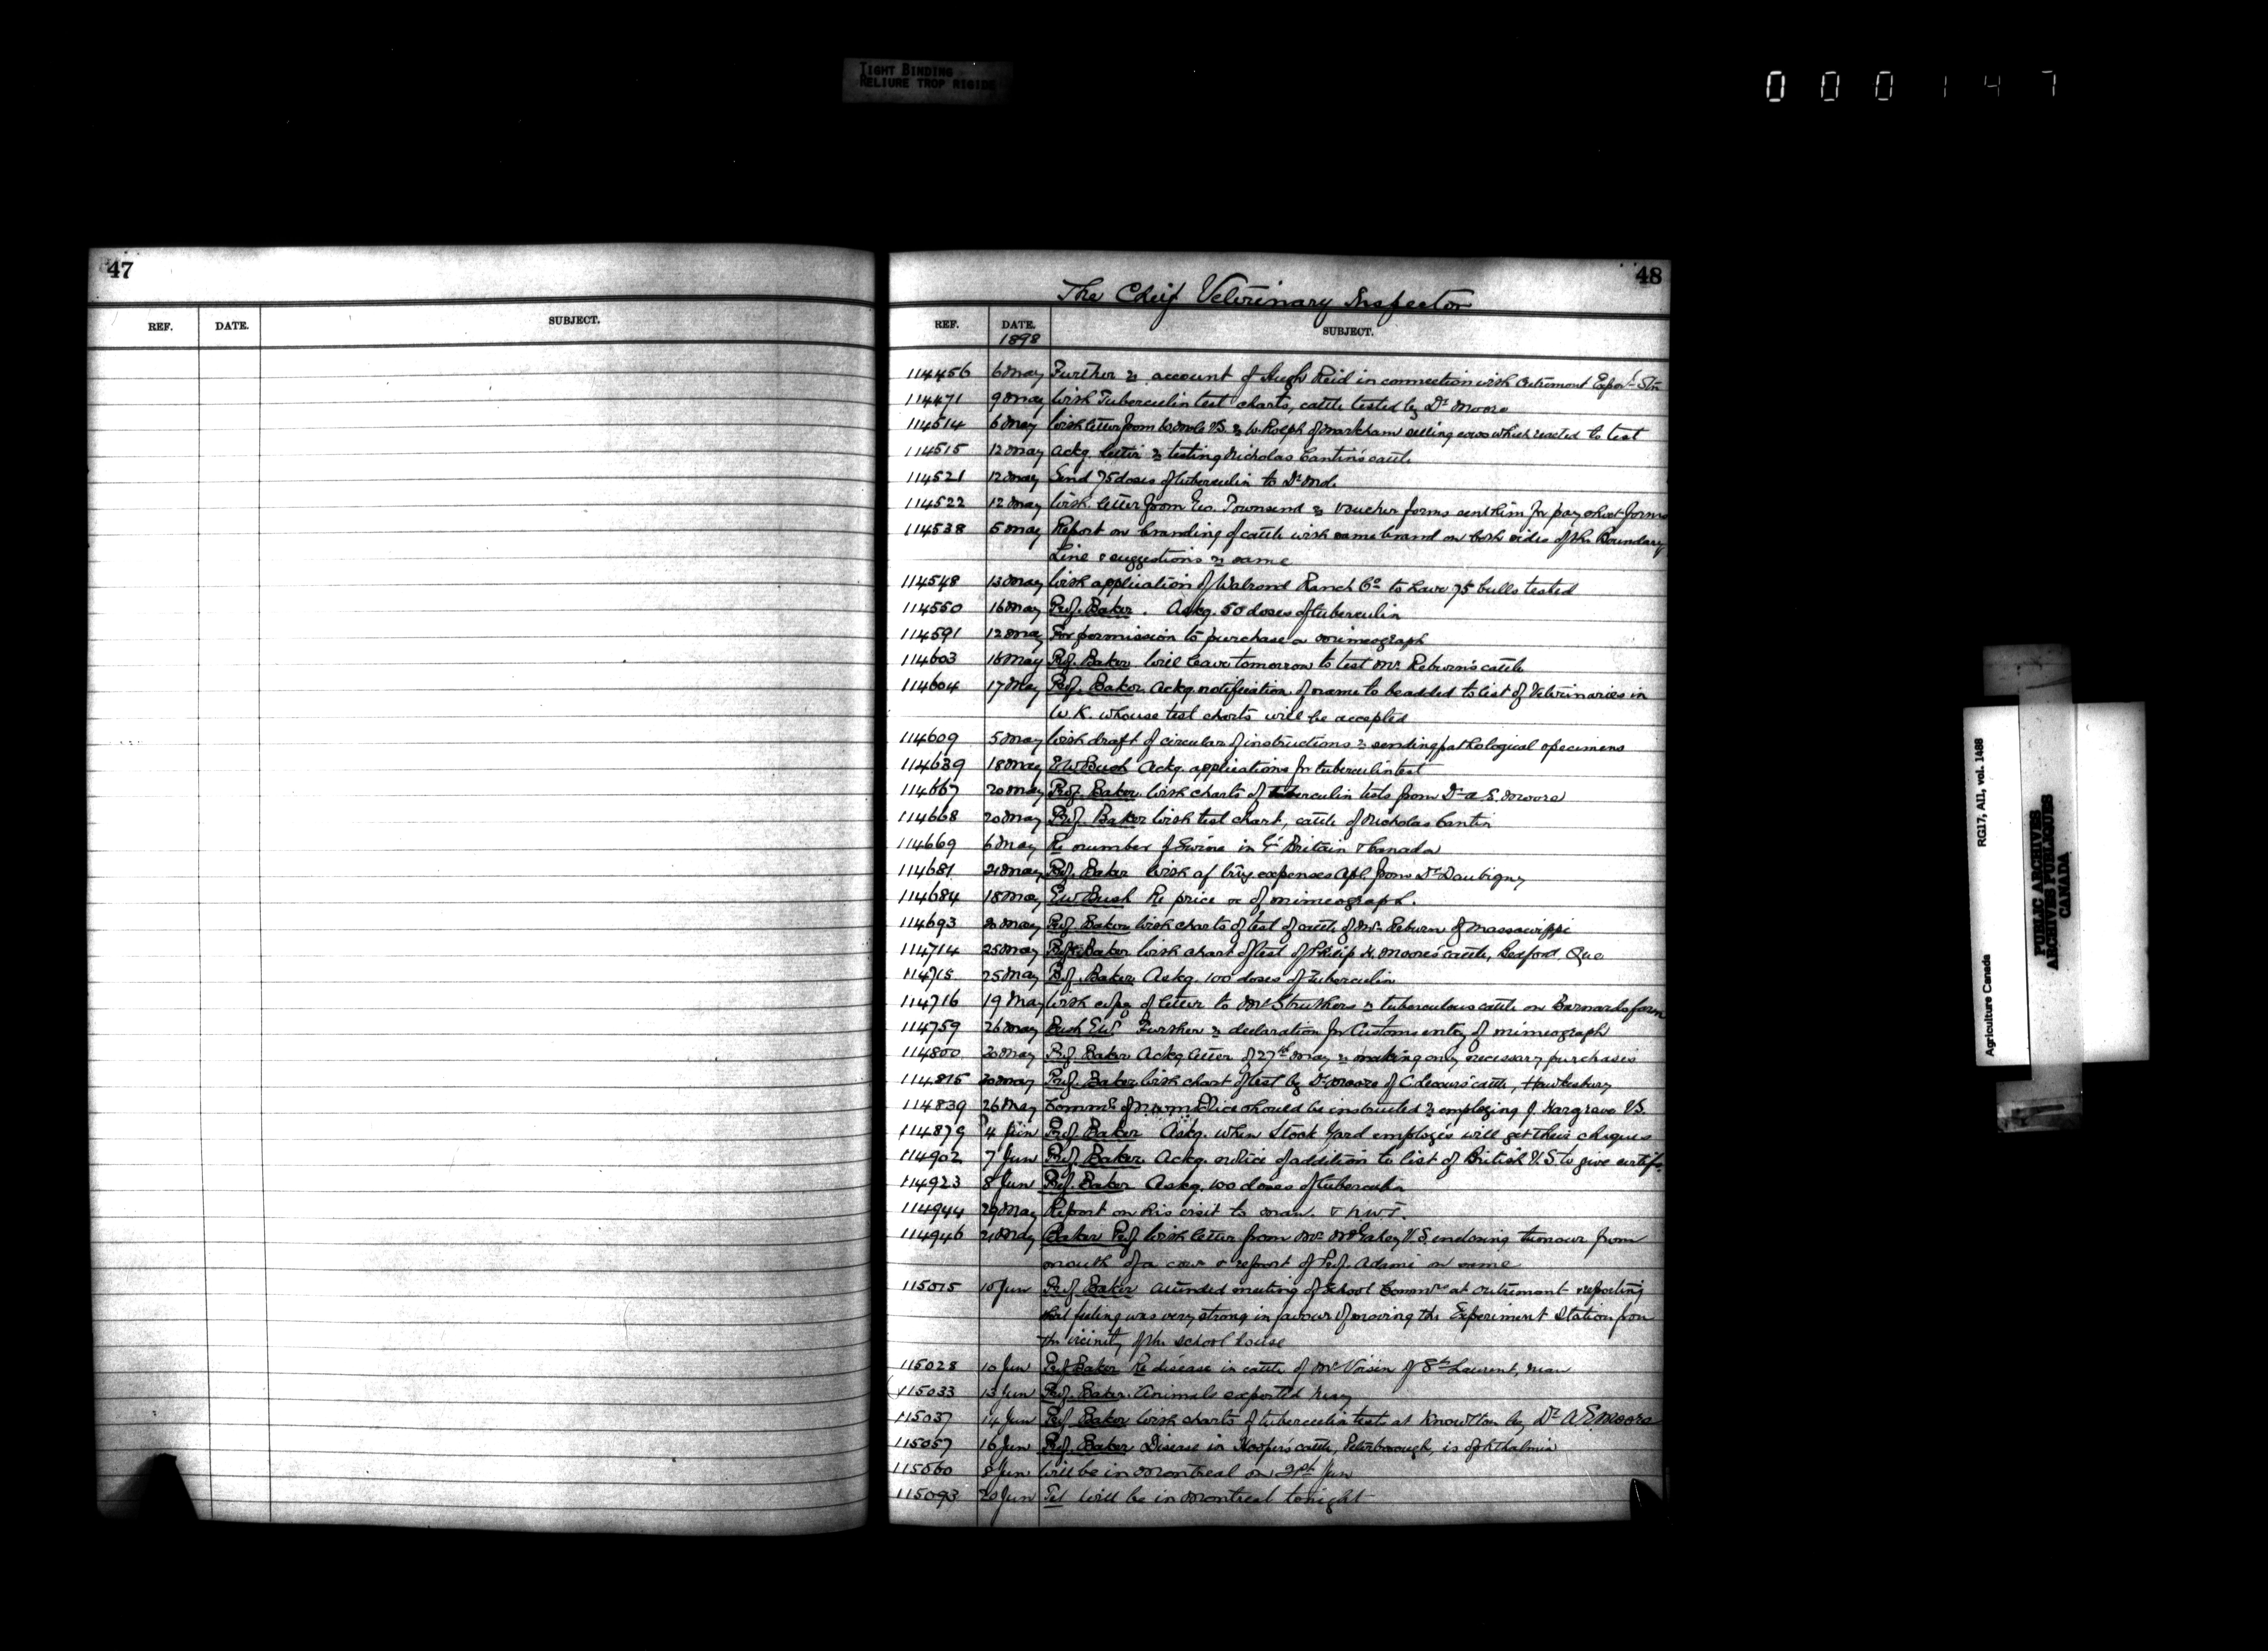 TIGHT BINDING
RELIURE TROP RIGIDE
000147
47
REF. DATE. SUBJECT.
48
The Chief Veterinary Inspector
REF. DATE. SUBJECT.
1898
114456 6 May Further re account of Hugh Reid in connection with Outremont Exper'l Stn
114471 9 May With Tuberculin test charts, cattle tested by Dr Moore
114514 6 May With letter from W. Mole V.S. re W. Rolph of Markham selling cows which reacted to test
114515 12 May Ackg. letter re testing Nicholas Cantin's cattle
114521 12 May Send 75 doses of tuberculin to Dr
114522 12 May With letter from Geo. Townsend re voucher forms sent him for pay sheet forms
114538 5 May Report on branding of cattle with same brand on both sides of the Boundary
Line & suggestions re same
114548 13 May With application of Walrond Ranch Co to have 75 bulls tested
114550 16 May Prof. Baker. Askg. 50 doses of tuberculin
114591 12 May For permission to purchase a mimeograph
114603 16 May Prof. Baker Will leave tomorrow to test Mr Reburn's cattle
114604 17 May Prof. Baker Ackg. notification of name to be added to list of Veterinaries in
U.K. whouse test charts will be accepted
114609 5 May With draft of circular of instructions re sending pathological specimens
114639 18 May E W Bush Ackg. applications for tuberculin test
114667 20 May Prof. Baker With charts of tuberculin tests from Dr A.E. Moore
114668 20 May Prof. Baker With test chart, cattle of Nicholas Cantin
114669 6 May Re number of Swine in Gt Britain & Canada
114681 21 May Prof. Baker With a/c trvg expenses Apl. from Dr Daubigny
114684 18 May EW Bush Re price &c of mimeograph.
114693 May Prof. Baker With charts of test of cattle of Mr Reburn of Massawippi
114714 25 May Prof. Baker With chart of test of Philip H. Moore's cattle, Bedford Que
114715 25 May Prof. Baker Askg. 100 doses of tuberculin
114716 19 May With copy of letter to Mr Struthers re tuberculous cattle on Barnardo farm
114759 26 May Bush E.W. Further re declaration for Customs entry of mimeograph
114800 30 May Prof. Baker Ackg letter of 27th May re making only necessary purchases
114815 30 May Prof. Baker With chart of test by Dr Moore of C. cattle, Hawkesbury
114839 26 May Commr of N.W.M. Police should be instructed re employing J. Hargrave V.S.
114879 4 Jun Prof. Baker Askg. when Stock Yard employés will get their cheques
114902 7 Jun Prof. Baker Ackg. notice of addition to list of British V.S. to give certifs.
114923 8 Jun Prof. Baker Askg. 100 doses of tuberculin
114944 29 May Report on his visit to Man. & N.W.T.
114946 21 May Baker Prof. With letter from Mr V.S. enclosing tumour from
mouth of a cow & report of Prof. Adami on same
115015 10 Jun Prof. Baker Attended meeting of School Commrs at Outremont reporting
that feeling was very strong in favour of moving the Experiment Station from
the vicinity of the school house
115028 10 Jun Prof Baker Re disease in cattle of Mr Voisin of St Laurent, Man
115033 13 Jun Prof. Baker. Animals exported May
115037 14 Jun Prof Baker With charts of tuberculin tests at Knowlton by Dr A.E. Moore
115057 16 Jun Prof. Baker Disease in Hooper's cattle, Peterborough, is ophthalmia
115060 8 Jun Will be in Montreal on 21st Jun
115093 20 Jun Tel Will be in Montreal tonight
Agriculture Canada RG17, AII, vol. 1488
PUBLIC ARCHIVES
ARCHIVES PUBLIQUES
CANADA